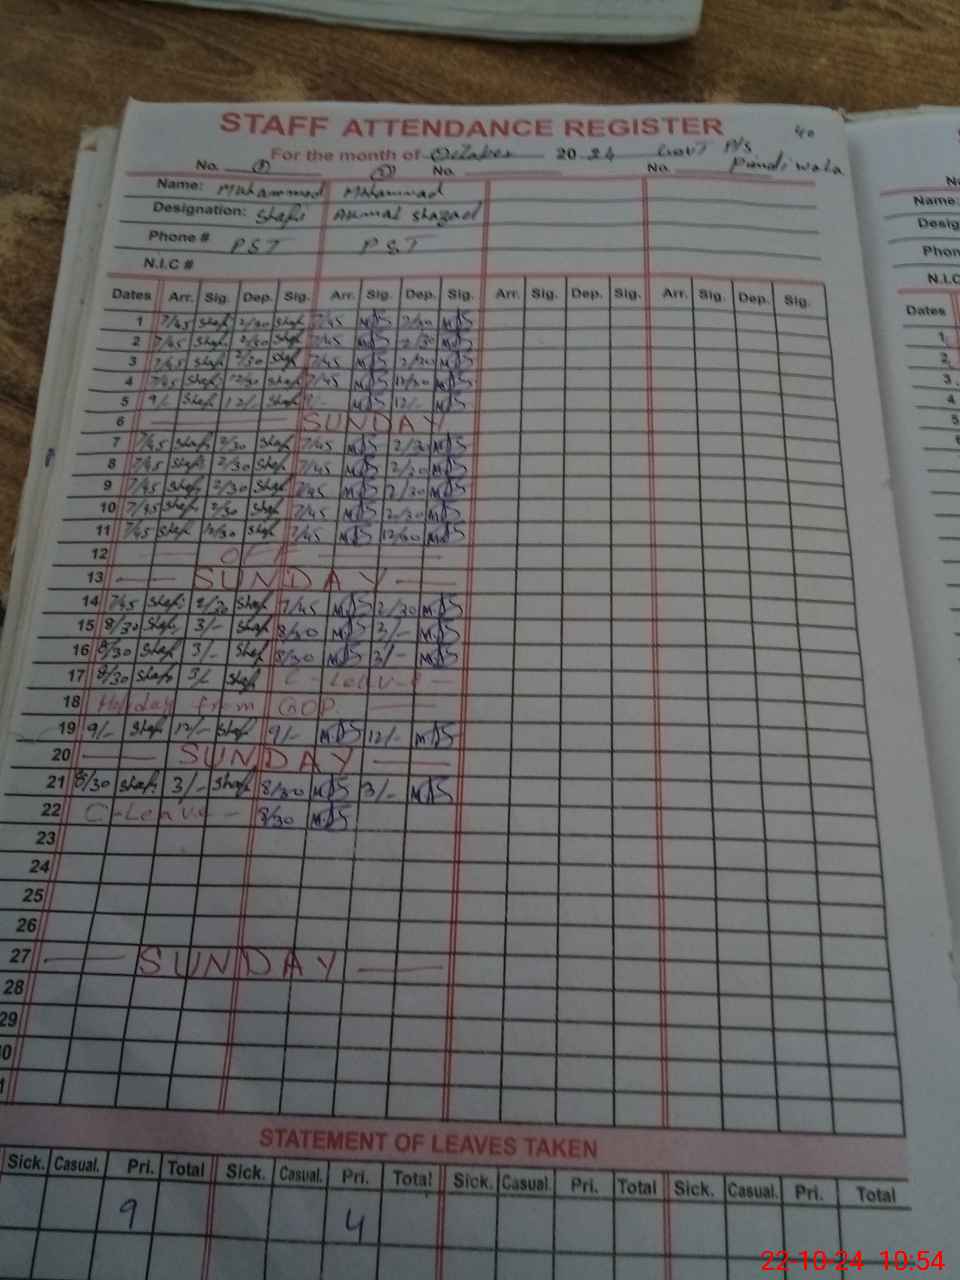 STAFF ATTENDANCE REGISTER 40
For the month of October 20 24 Govt P/s
No. 1 No. 2 No. No. Pindi wala
Name: Muhammad Muhammad
Designation: Shafi Akmal Shazad
Phone # PST PST
N.I.C #
Dates Arr. Sig. Dep. Sig. Arr. Sig. Dep. Sig. Arr. Sig. Dep. Sig. Arr. Sig. Dep. Sig.
1 7/45 Shafi 2/30 Shafi 7/45 MAS 2/30 MAS
2 7/45 Shafi 2/30 Shafi 7/45 MAS 2/30 MAS
3 7/45 Shafi 2/30 Shafi 7/45 MAS 2/30 MAS
4 7/45 Shafi 12/30 Shafi 7/45 MAS 12/30 MAS
5 9/- Shafi 12/- Shafi 9/- MAS 12/- MAS
6 SUNDAY
7 7/45 Shafi 2/30 Shafi 7/45 MAS 2/30 MAS
8 7/45 Shafi 2/30 Shafi 7/45 MAS 2/30 MAS
9 7/45 Shafi 2/30 Shafi 7/45 MAS 2/30 MAS
10 7/45 Shafi 2/30 Shafi 7/45 MAS 2/30 MAS
11 7/45 Shafi 12/30 Shafi 7/45 MAS 12/30 MAS
12 OFF
13 SUNDAY
14 7/45 Shafi 2/30 Shafi 7/45 MAS 2/30 MAS
15 8/30 Shafi 3/- Shafi 8/30 MAS 3/- MAS
16 8/30 Shafi 3/- Shafi 8/30 MAS 3/- MAS
17 8/30 Shafi 3/- Shafi C-Leave-
18 Holiday from GOP
19 9/- Shafi 12/- Shafi 9/- MAS 12/- MAS
20 SUNDAY
21 8/30 Shafi 3/- Shafi 8/30 MAS 3/- MAS
22 C-Leave- 8/30 MAS
23
24
25
26
27 SUNDAY
28
29
STATEMENT OF LEAVES TAKEN
Sick. Casual. Pri. Total Sick. Casual. Pri. Total Sick. Casual. Pri. Total Sick. Casual. Pri. Total
9 4
22-10-24 10:54